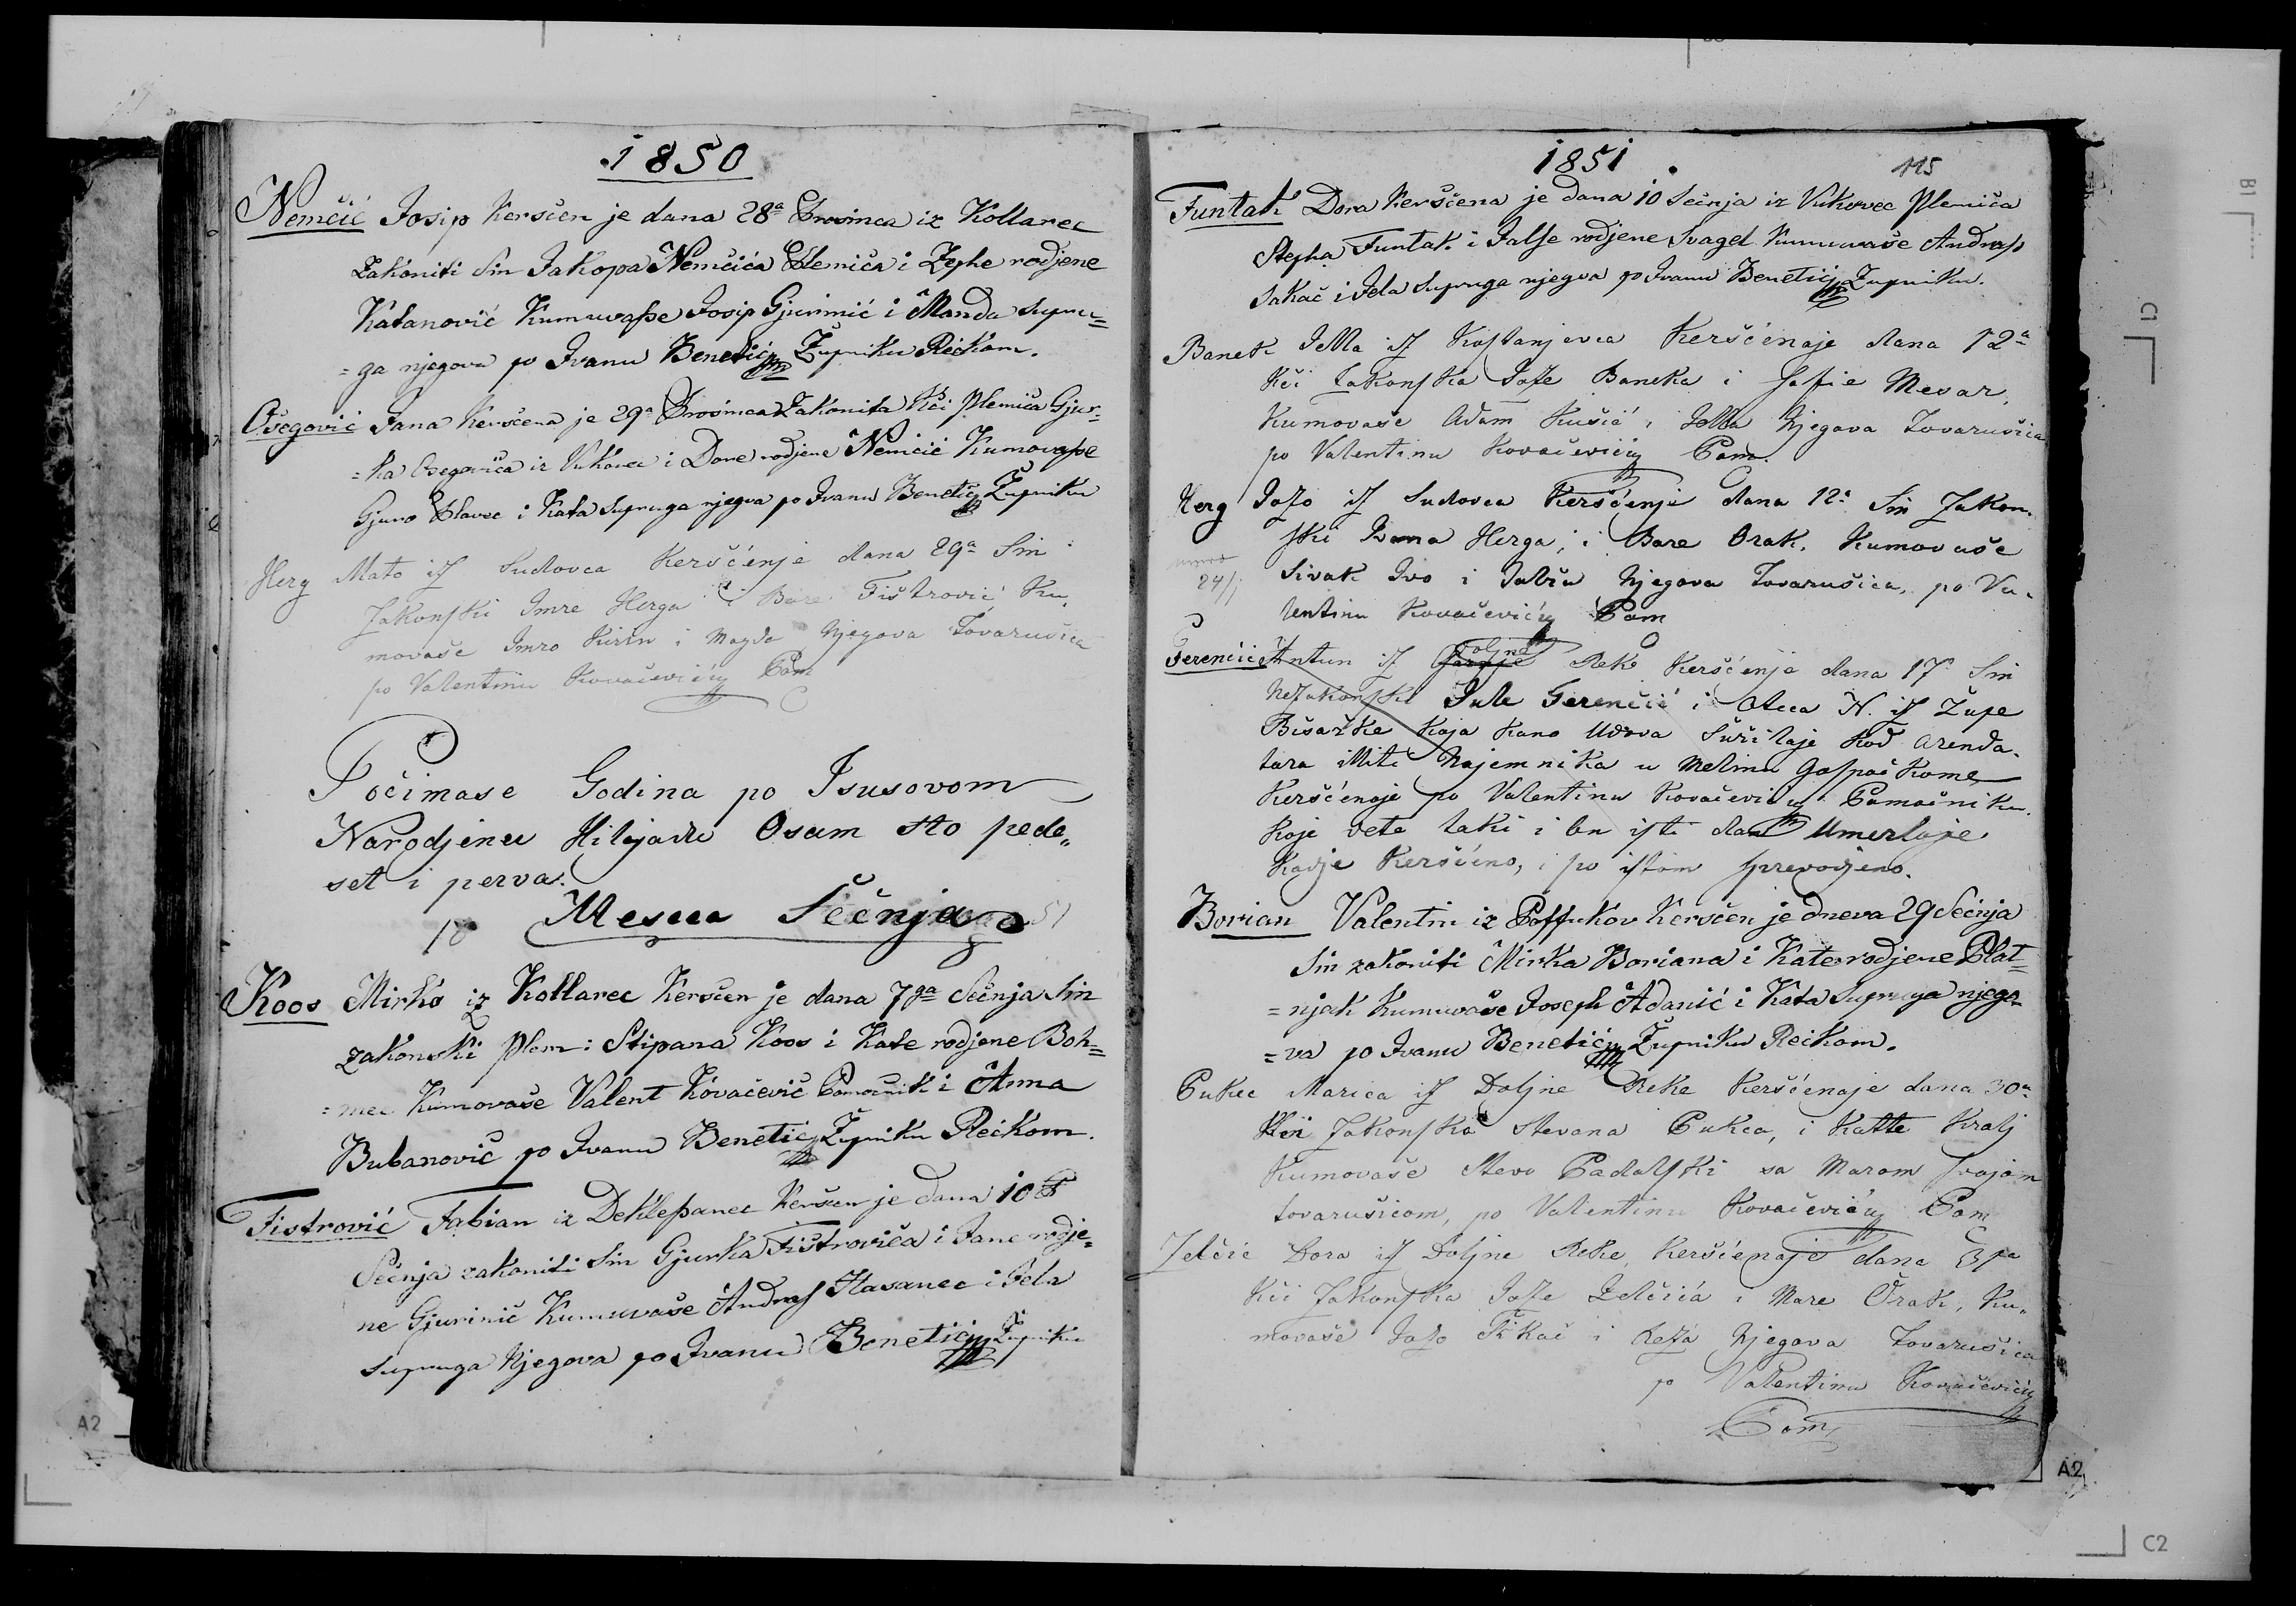 1850
Nemčić Josip Kersčen je dana 28ª Prosinca iz Kollarec
zakoniti Sin Jakopa Nemčića Plemića i Zephe rodjene
Katanović Kumuvaße Josip Gjurinić i Manda supru=
=ga njegova po Ivanu Benetić Župniku Rečkom.
Osegović Jana Kersčena je 29ª Prosinca Zakonita Kći Plemića Gjur=
=ka Osegovića iz Vukovec i Dore rodjene Nemčić Kumovaße
Gjuro Slavec i Kata Supruga njegva po Ivanu Benetić Župniku
Herg Mato iz Sudovca Keršćenje dana 29ª Sin
Zakonski Imre Herga i Bare Fištrović, Ku,
movaše Imro Kirin i Magda Njegova Tovarušica
po Valentinu Kovačeviću Pom
Počimase Godina po Isusovom
Narodjenu Hiljadu Osam sto pede„
set i perva.
18 Mesca Sečnja 51
Koos Mirko iz Kollarec Kersčen je dana 7ga Sečnja Sin
zakonski Plem: Stipana Koos i Kate rodjene Boh=
=mec Kumovaše Valent Kovačevič Pomočnik i Anna
Bubanovič po Ivanu Benetić Župniku Rečkom.
Fistrović Fabian iz Deklepanec Kersčen je dana 10ª
Sečnja zakoniti Sin Gjurka Fištroviča i Jane rodje=
ne Gjurinič Kumuvaše Andraſ Hasanec i Jela
supruga Njegova po Ivanu Benetić Župniku
1851.
115
Funtak Dora Kersčena je dana 10 Sečnja iz Vukovec Plemiča
Stepha Funtak i Jalſe rodjene Svagel Kumuvaše Andraſ
Sakač i Jela Supruga njegva po Ivanu Benetić Župniku.
Banek Jella iz Koſtanjevca Kerśćenaje dana 12ª
Kći Zakonſka Jože Baneka i Sofie Mesar,
Kumovaše Adam Kušić i Jella Njegova Tovarušica
po Valentinu Kovačeviću Pom.
Herg Jožo iz Sudovca Kerśćenje dana 12ª Sin Zakon„
ſki Ivana Herga, i Bare Orak. Kumovaše
umro
24/1 Sivak Ivo i Njegova Tovarušica, po Va„
lentinu Kovačeviću Pom
Ferenčić Antun iz Doljne Reke Kerśćenje dana 17 Sin
Nezakonſki Jule Ferenčić i Otca N. iz Župe
Bisažke koja kano Udova Služilaje kod Arenda„
tara illiti Najemnika u Melinu Goſpočkome
Kerśćenoje po Valentinu Kovačeviću Pomočniku.
Koje Dete taki i on iſti dan Umerloje
Kadje Kerśćeno, i po iſtom ſprevodjeno.
Borian Valentin iz Paſſukov Kersčen je dneva 29 Sečnja
Sin zakoniti Mirka Boriana i Kate rodjene Plat=
=njak Kumuvaše Joseph Adanić i Kata Supruga njego=
=va po Ivanu Benetić Župniku Rečkom.
Pukec Marica iz Doljne Reke Kerśćenaje dana 30ª
Kći Zakonſka Stevana Pukca, i Katte Kralj
Kumovaše Stevo Padalſki sa Marom ſvojom
tovarušicom, po Valentinu Kovačeviću Pom
Zelčić Dora iz Doljne Reke, Kerśćenaje dana 3ga
Kći Zakonſka Jože Zelčića i Mare Orak, Ku„
movaše Jožo Tkač i Reža Njegova Tovarušica
po Valentinu Kovačeviću
Pom
A2
A2
B1
C1
C2